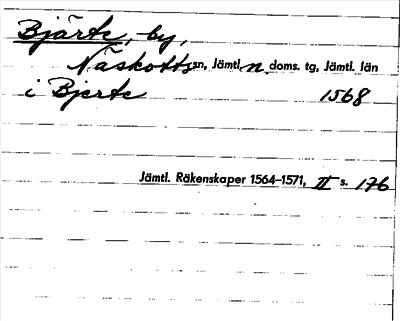 Bjärte, by,
Näskotts sn, Jämtl. n. doms. tg, Jämtl. län
i Bjerte 1568
Jämtl. Räkenskaper 1564–1571, II s. 176